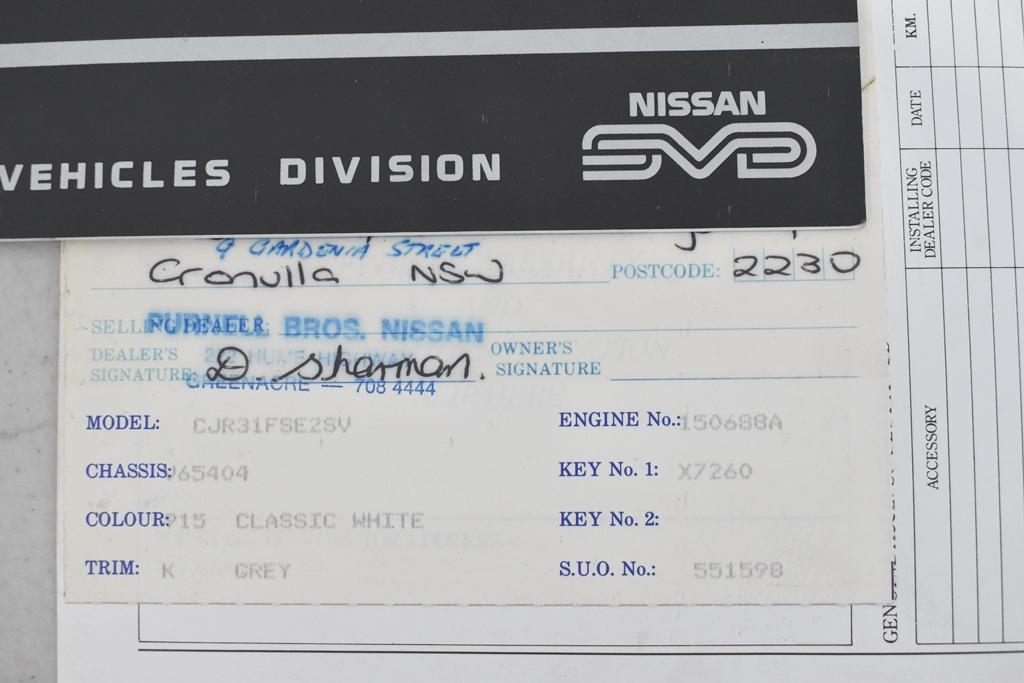 NISSAN
SVD
VEHICLES DIVISION
9 GARDENIA STREET
Cronulla NSW POSTCODE: 2230
SELLING DEALER: PURNELL BROS. NISSAN
HUME HIGHWAY
DEALER'S SIGNATURE: D. Sherman. OWNER'S SIGNATURE
GREENACRE — 708 4444
MODEL: CJR31FSE2SV ENGINE No.: 150688A
CHASSIS: 65404 KEY No. 1: X7260
COLOUR: 915 CLASSIC WHITE KEY No. 2:
TRIM: K GREY S.U.O. No.: 551598
KM.
DATE
INSTALLING DEALER CODE
ACCESSORY